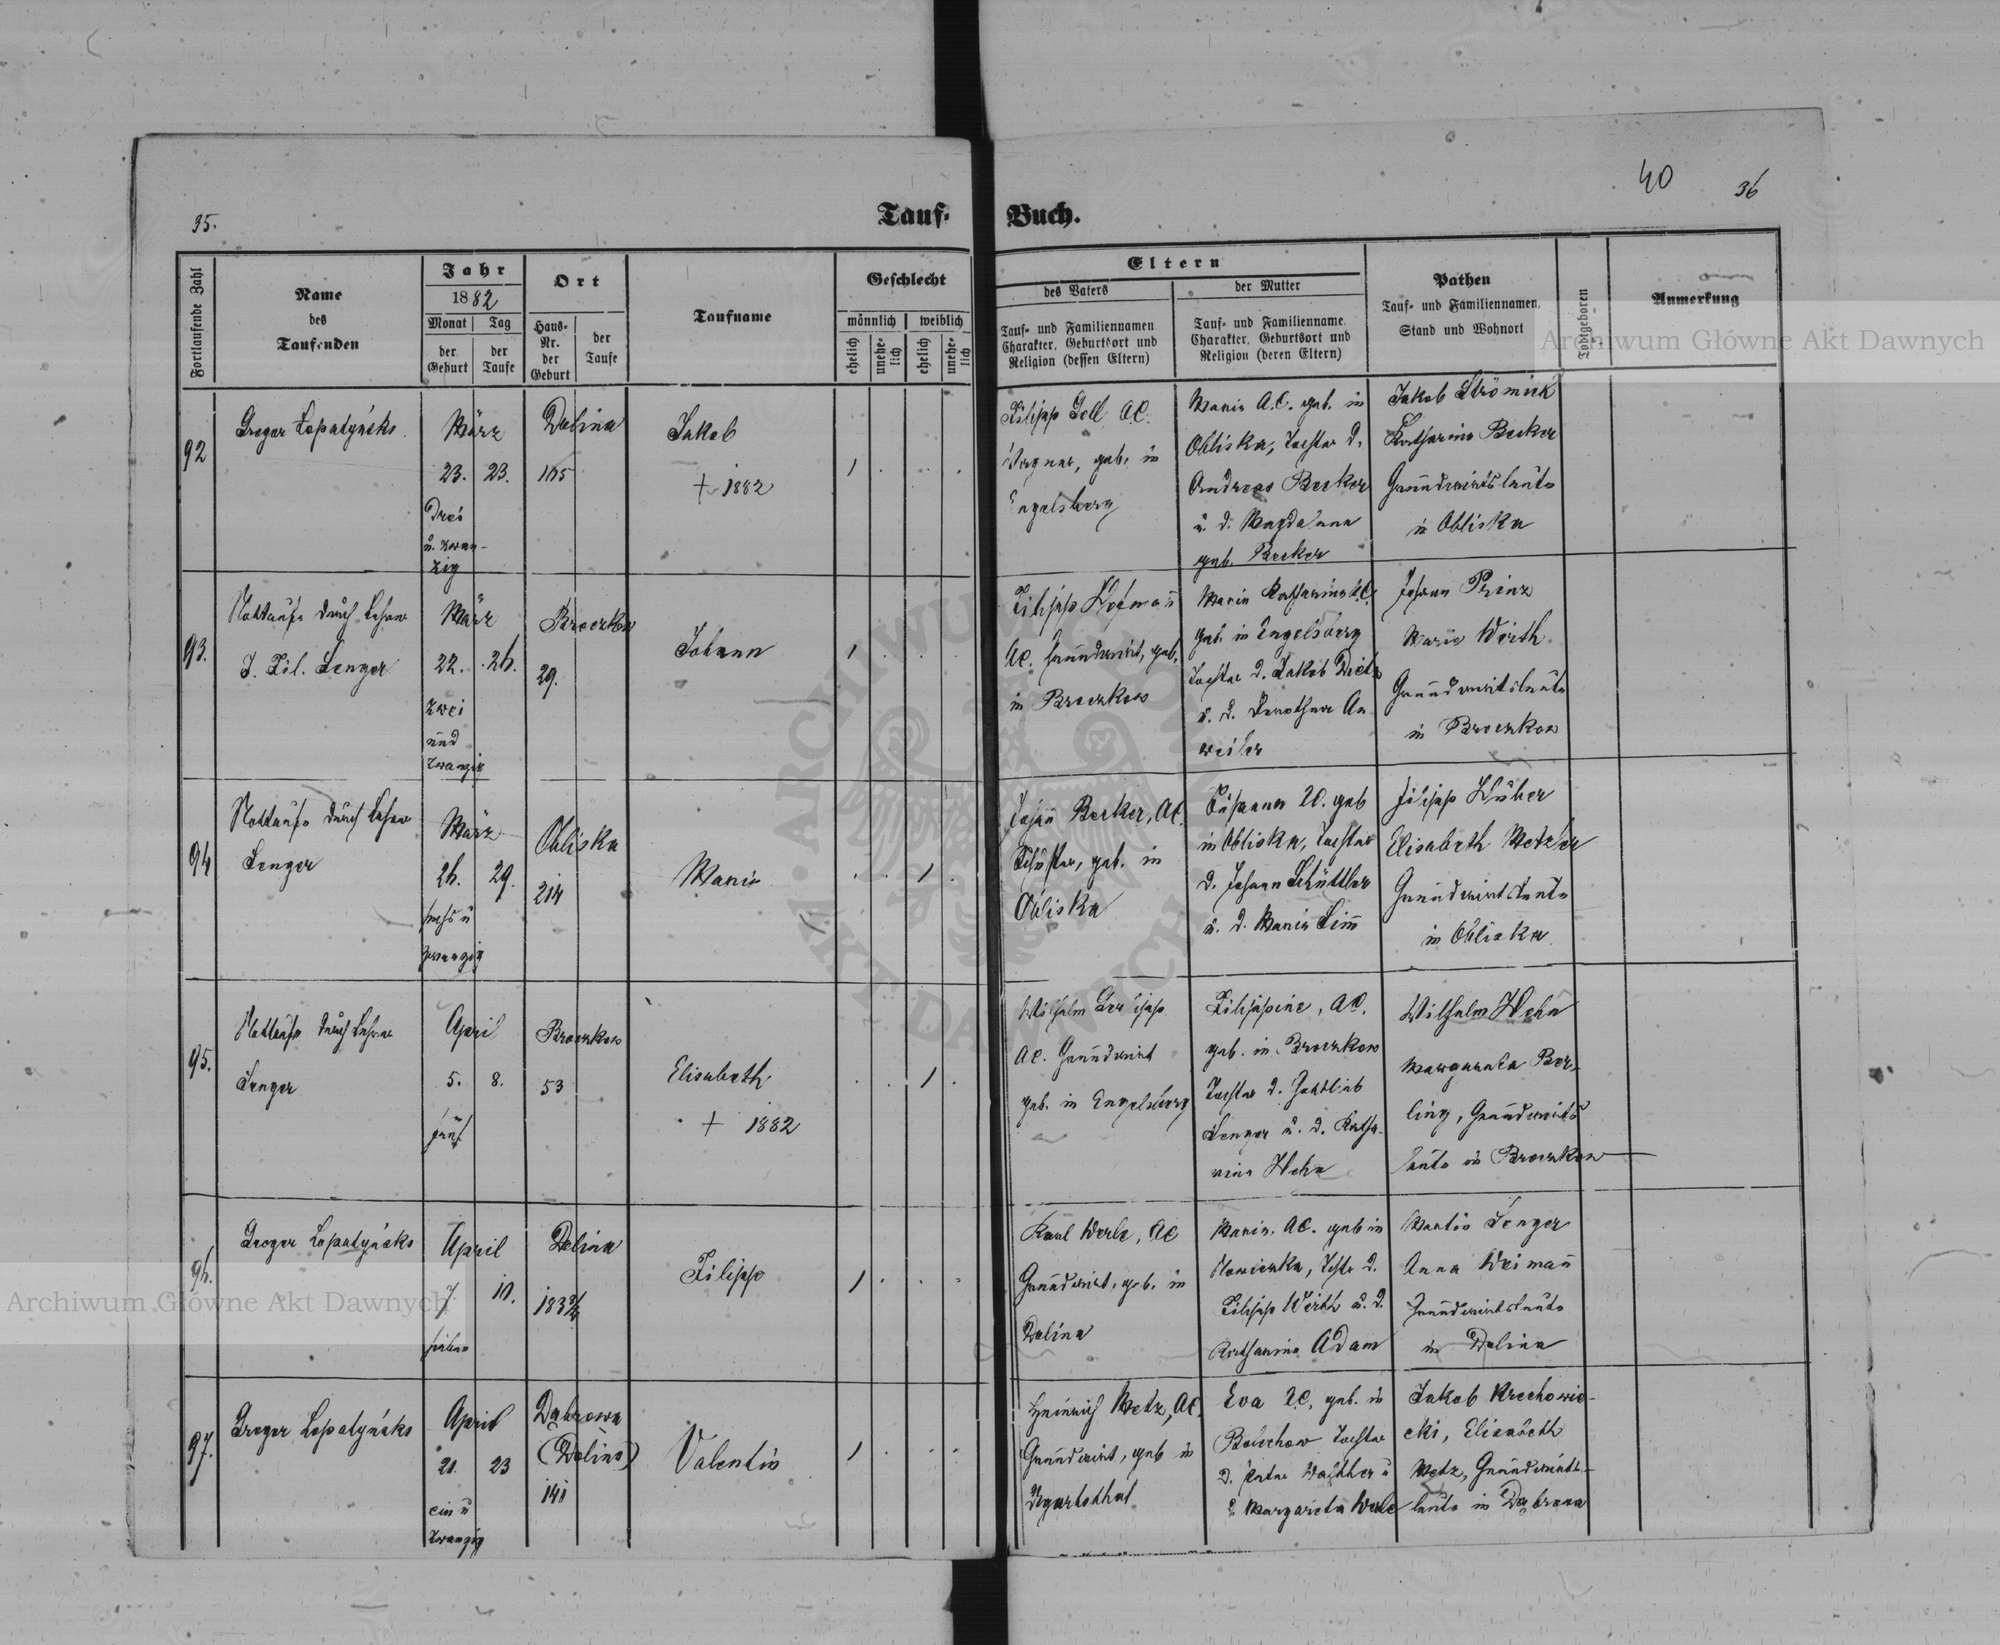 40
36
35.
Tauf-Buch.
Fortlaufende Zahl
Name
des
Taufenden
Jahr
1882
Monat
Tag
der
Geburt
der
Taufe
Ort
Haus-
Nr.
der
Geburt
der
Taufe
Taufname
Geschlecht
männlich
weiblich
ehelich
unehe-
lich
ehelich
unehe-
lich
Eltern
des Vaters
der Mutter
Tauf- und Familiennamen
Charakter, Geburtsort und
Religion (dessen Eltern)
Tauf- und Familienname
Charakter, Geburtsort und
Religion (deren Eltern)
Pathen
Tauf- und Familiennamen,
Stand und Wohnort
Todtgeboren
Anmerkung
92
Lopatyński
März
23. 23.
Drei
u. zwan-
zig
Dolina
Jakob
+ 1882
1
Filipp Goll A.C.
Wagner, geb. in
Engelsberg
Maria A.C. geb. in
Obliska, Tochter d.
Andreas Becker
u. d. Magdalena
geb. Becker
Jakob
Katharina Becker
Grundwirtsleute
in Obliska
93.
Nottaufe durch Lehrer
J. Fil. Senger
März
22. 26.
zwei
und
zwanzig
Broczkow
29.
Johann
1
Filipp Hofmann
A.C. Grundwirt, geb.
in Broczkow
Maria Katharina A.C.
geb. in Engelsberg
Tochter d. Jakob Dietz
u. d. Dorothea An
weiler
Johann Prinz
Maria Wirth
Grundwirtsleute
in Broczkow
94
Nottaufe durch Lehrer
Senger
März
26. 29.
sechs u
zwanzig
Obliska
214
Maria
1
Johann Becker, A.C.
Schuster, geb. in
Obliska
Susanna A.C. geb
in Obliska, Tochter
d. Johann Schüttler
u. d. Maria
Filipp Huber
Elisabeth Metzler
Grundwirtsleute
in Obliska
95.
Nottaufe durch Lehrer
Senger
April
5. 8.
fünf
Broczkow
53
Elisabeth
+ 1882
1
Wilhelm
A.C. Grundwirt
geb. in Engelsberg
Filippine, A.C.
geb. in Broczkow
Tochter d. Gottlieb
Senger u. d. Katha-
rina Hehn
Wilhelm Hehn
Margareta Ber-
ling, Grundwirts
leute in Broczkow
96.
Lopatyński
April
7 10.
sieben
Dolina
Filipp
1
Karl Werle, A.C
Grundwirt, geb. in
Dolina
Maria. A.C. geb in
Nowiczka, Tochter d.
Filipp Wirth u. d.
Katharina Adam
Martin Senger
Anna Weimann
Grundwirtsleute
in Dolina
97.
Lopatyński
April
21. 23
ein u
zwanzig
Dąbrowa
(Dolina)
141
Valentin
1
Heinrich Metz, A.C.
Grundwirt, geb in
Ugartsthal
Eva A.C. geb. in
Bolechow Tochter
d. Peter Walther u
d Margareta Werle
Jakob Krechowie-
cki, Elisabeth
Metz, Grundwirts-
leute in Dąbrowa
Archiwum Główne Akt Dawnych
Archiwum Główne Akt Dawnych
ARCHIWUM GŁÓWNE AKT DAWNYCH